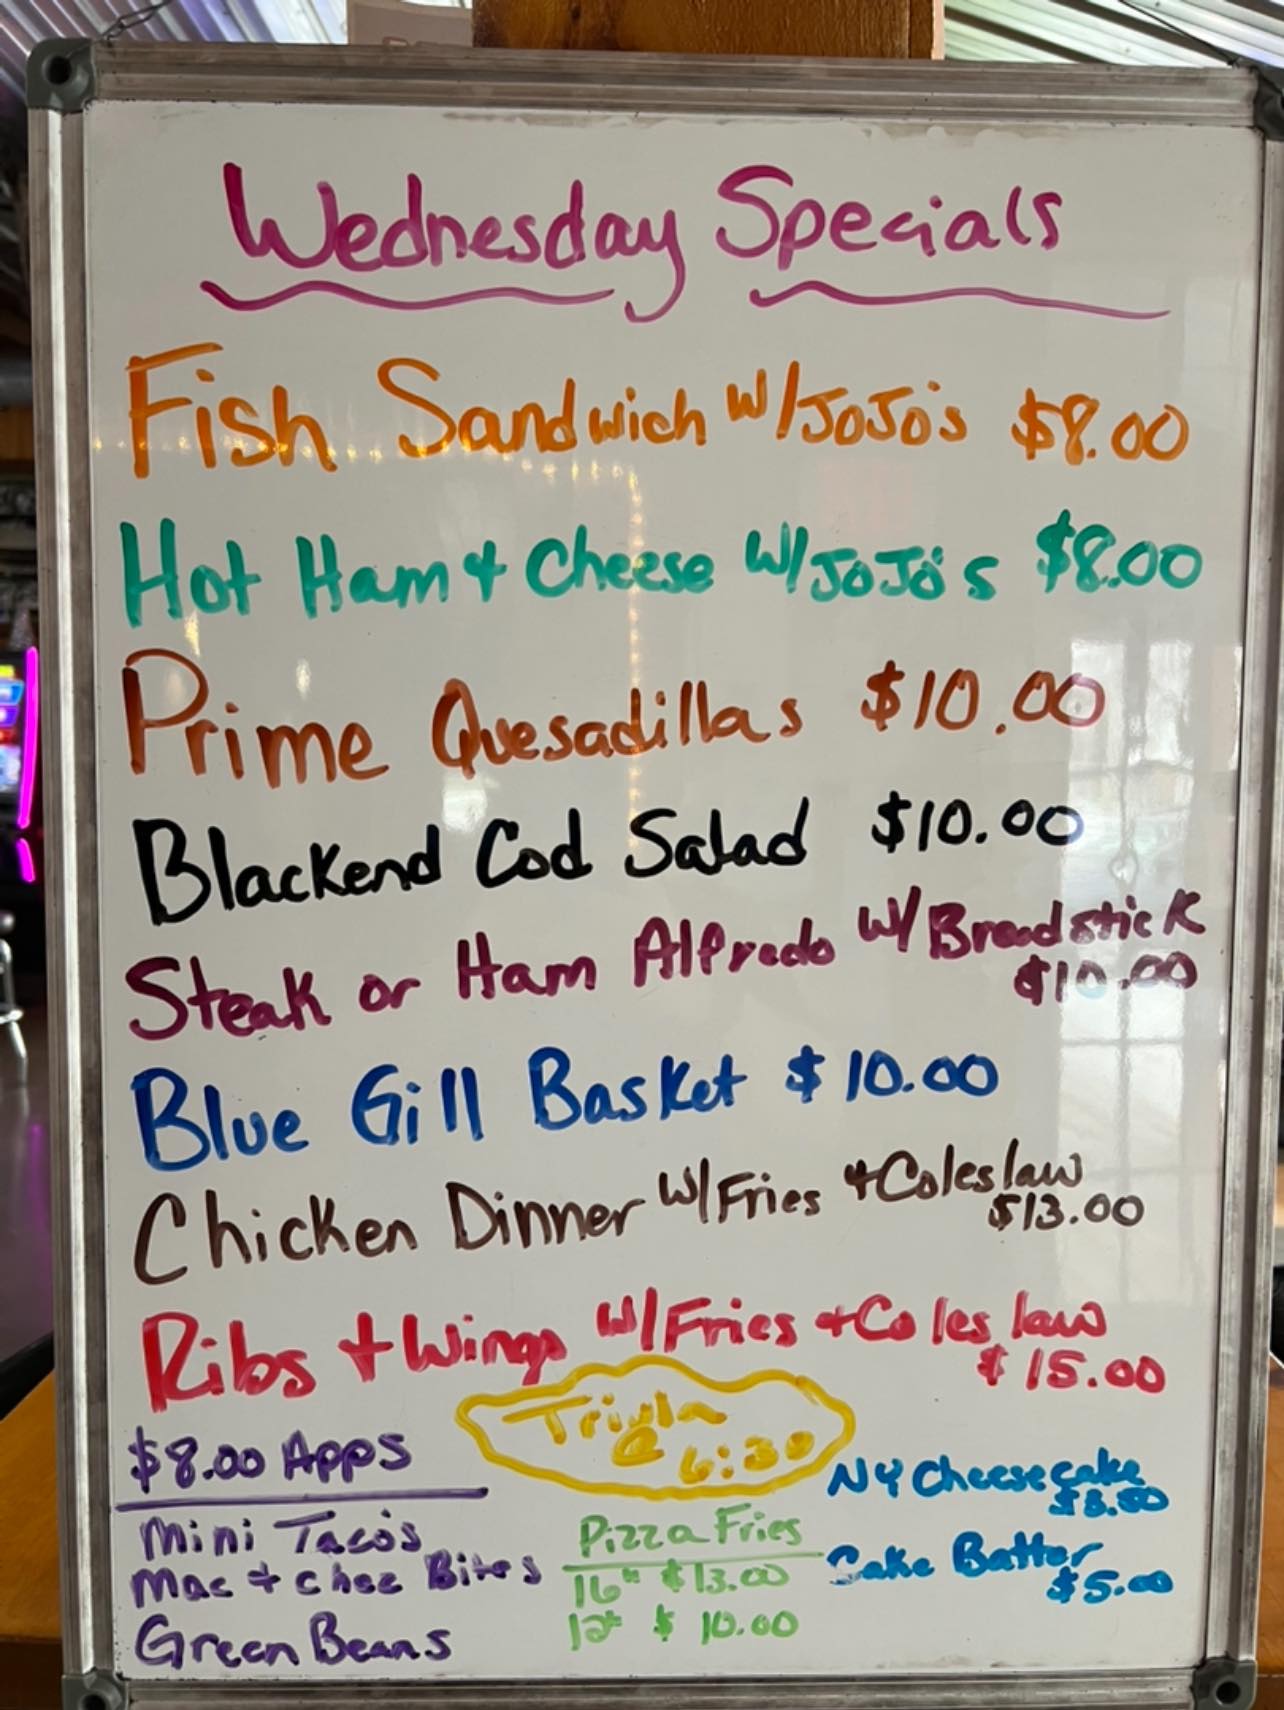 Wednesday Specials
Fish Sandwich w/JoJo's $8.00
Hot Ham + Cheese w/JoJo's $8.00
Prime Quesadillas $10.00
Blackend Cod Salad $10.00
Steak or Ham Alfredo w/Breadstick
$10.00
Blue Gill Basket $10.00
Chicken Dinner w/Fries + Coleslaw
$13.00
Ribs + Wings w/Fries + Coleslaw
$15.00
Trivia
@ 6:30
$8.00 Apps
Mini Taco's
Mac + Chez Bites
Green Beans
Pizza Fries
16" $13.00
12" $10.00
NY Cheesecake
$3.50
Cake Batter
$5.00